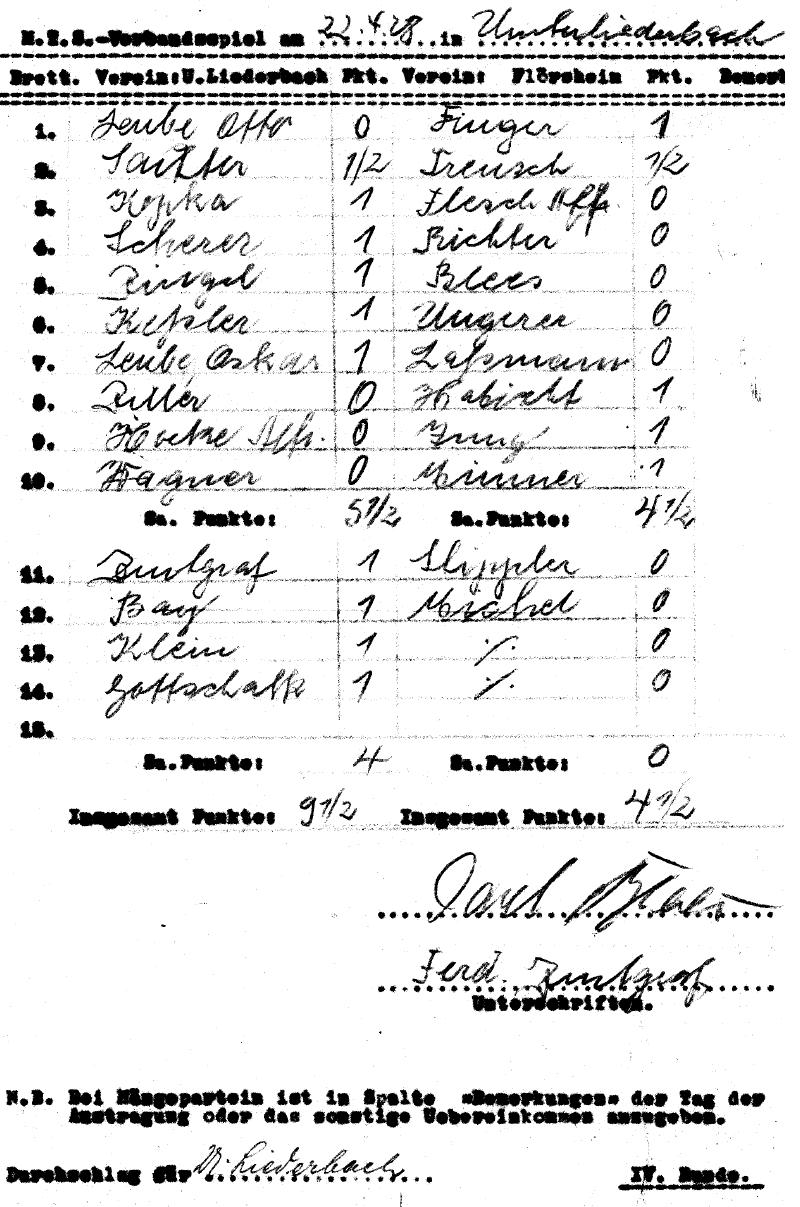 M.T.S.-Verbandsspiel am 22.4.28 in Unterliederbach
Brett. Verein: U.Liederbach Pkt. Verein: Flörsheim Pkt. Bemerk
1. Leube Otto 0 Finger 1
2. Sachter 1/2 Treusch 1/2
3. Kopka 1 Flesch 0
4. Scherer 1 Richter 0
5. Ringel 1 Blees 0
6. Keßler 1 Ungerer 0
7. Leube Oskar 1 Laßmann 0
8. Ritter 0 Habicht 1
9. 0 Jung 1
10. Wagner 0 Mimner 1
Sa. Punkte: 5 1/2 Sa.Punkte: 4 1/2
11. Zentgraf 1 Slippler 0
12. Bay 1 Michel 0
13. Klein 1 ./. 0
14. Gottschalk 1 ./. 0
15.
Sa.Punkte: 4 Sa.Punkte: 0
Insgesamt Punkte: 9 1/2 Insgesamt Punkte: 4 1/2
Ferd. Zentgraf
Unterschriften.
N.B. Bei Hängepartein ist in Spalte "Bemerkungen" der Tag der
Austragung oder das sonstige Uebereinkommen anzugeben.
Durchschlag für U. Liederbach IV. Runde.